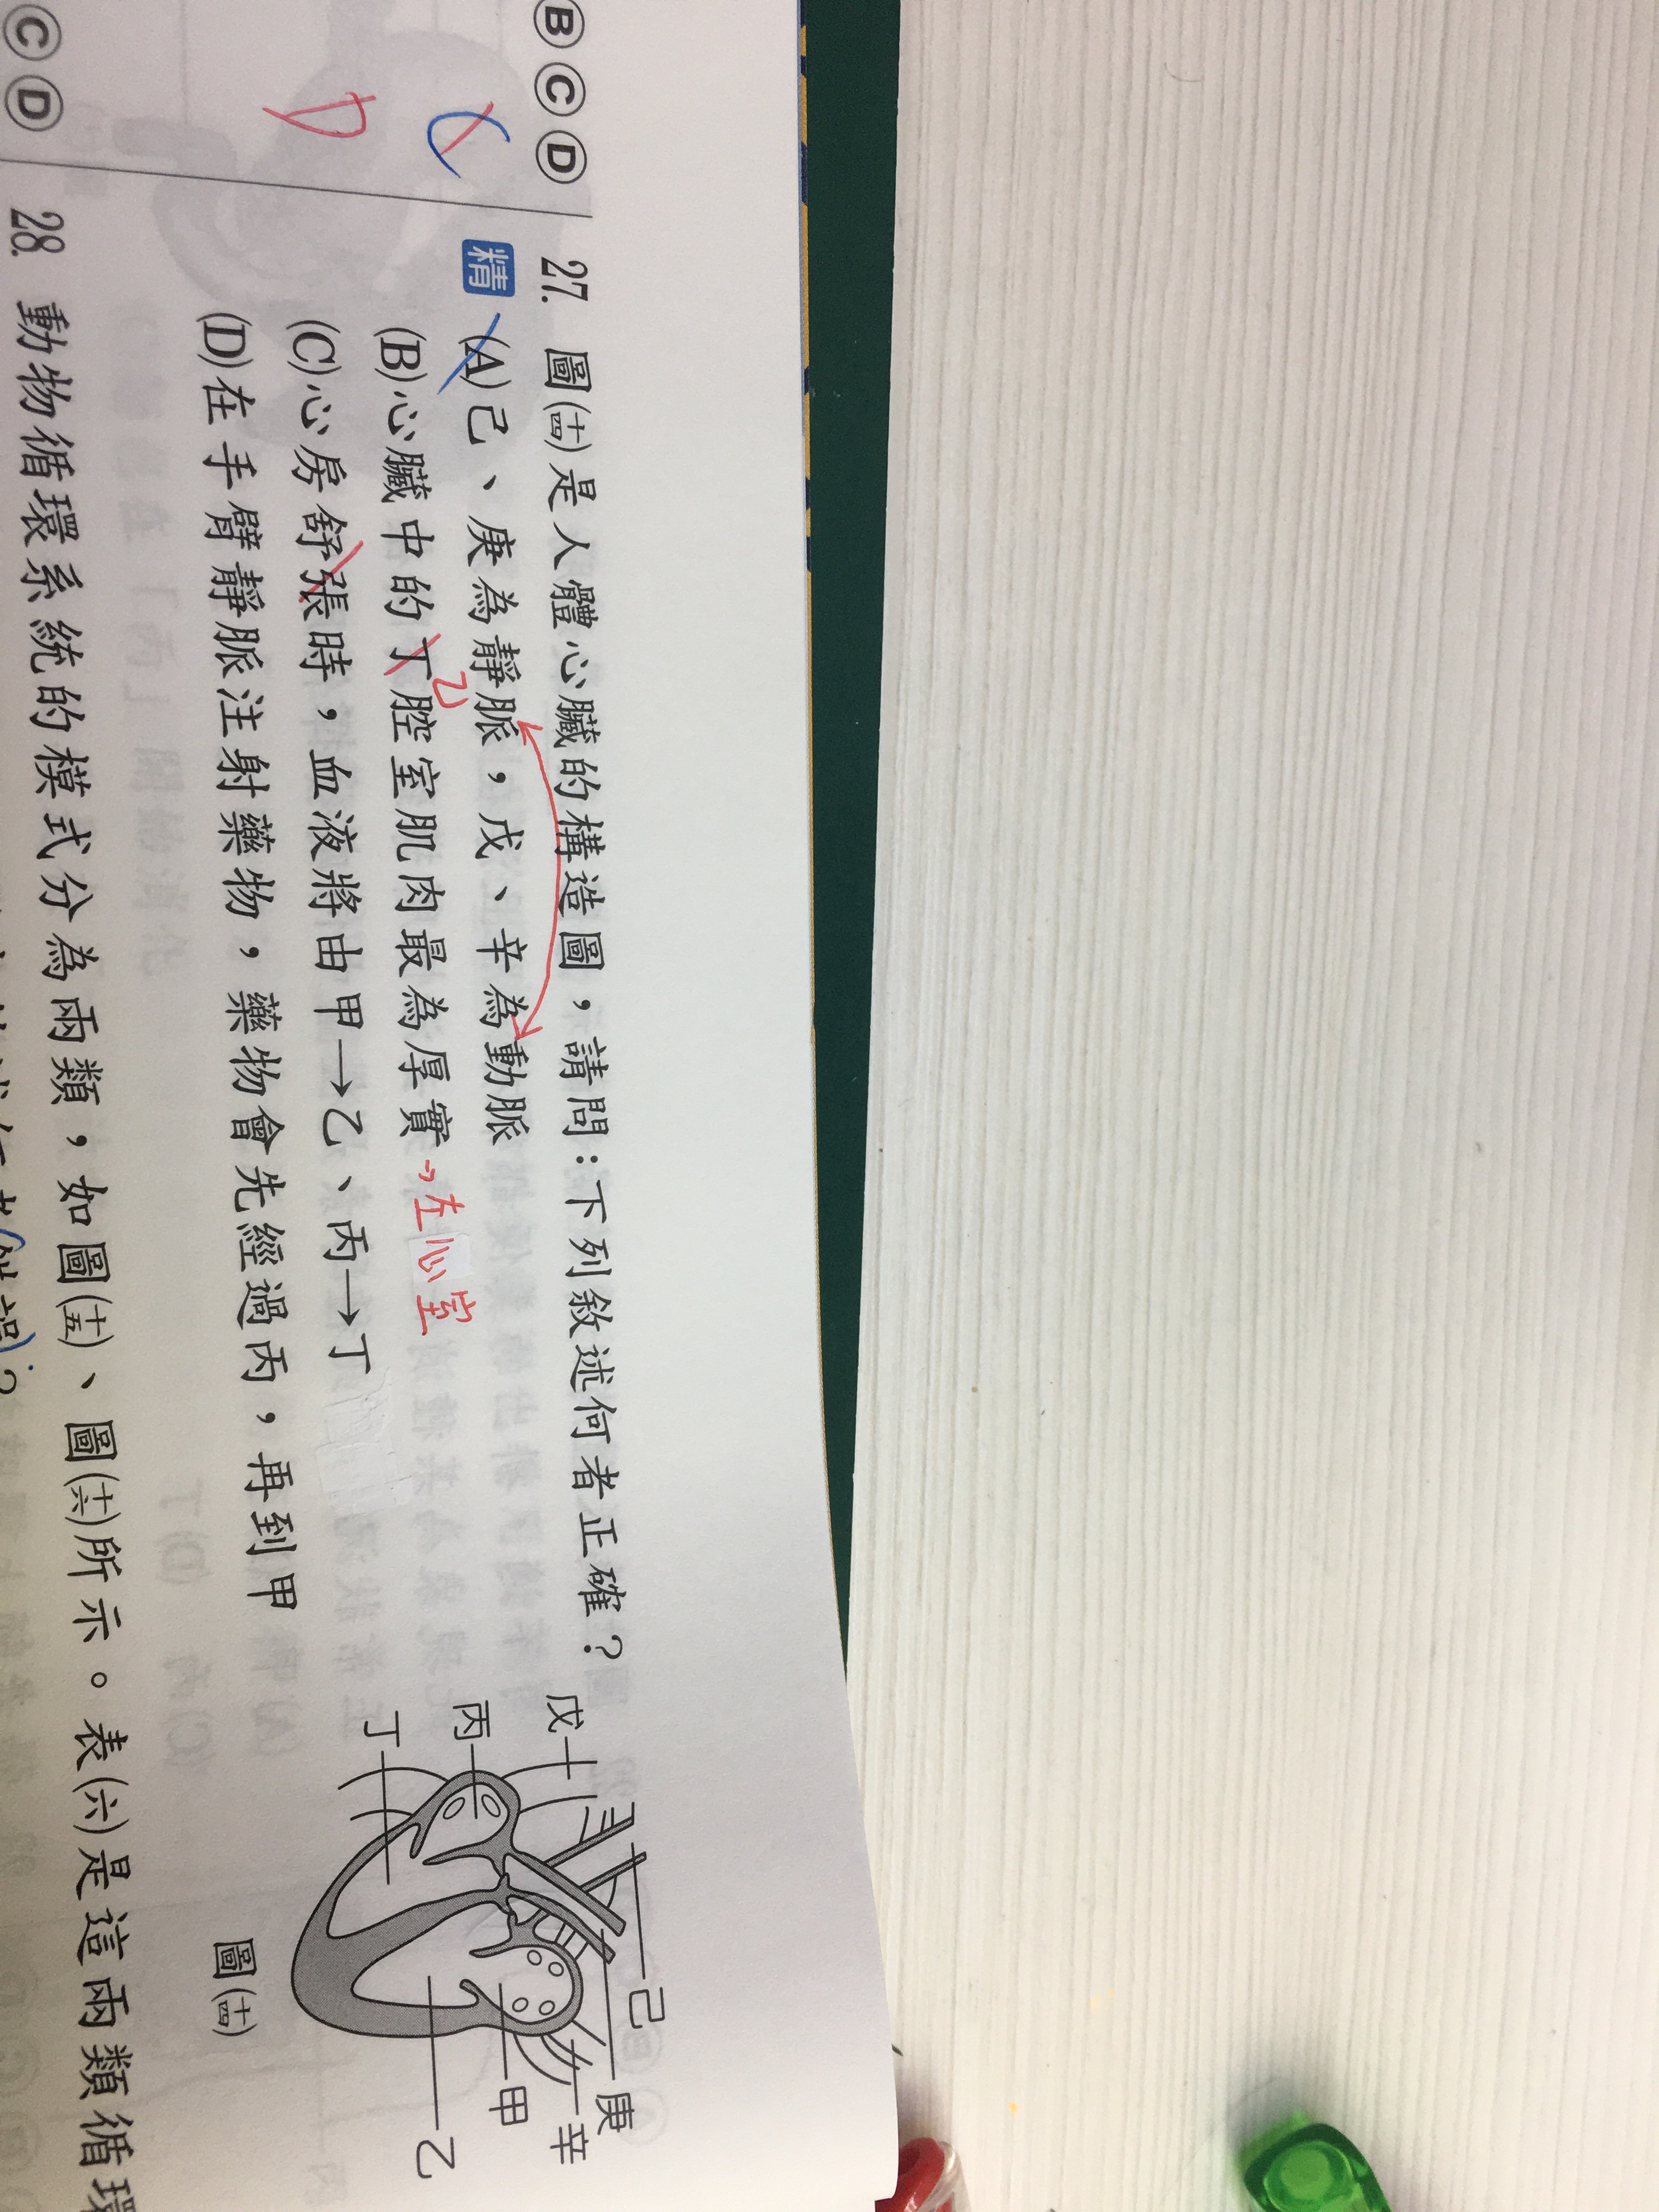 Ⓑ Ⓒ Ⓓ
C
D
27. 圖(十四)是人體心臟的構造圖，請問：下列敘述何者正確？
精
(A)己、庚為靜脈，戊、辛為動脈
(B)心臟中的丁腔室肌肉最為厚實→左心室
乙
(C)心房舒張時，血液將由甲→乙、丙→丁
(D)在手臂靜脈注射藥物，藥物會先經過丙，再到甲
戊
丙
丁
己
庚
辛
甲
乙
圖(十四)
Ⓒ Ⓓ
28. 動物循環系統的模式分為兩類，如圖(十五)、圖(十六)所示。表(六)是這兩類循環